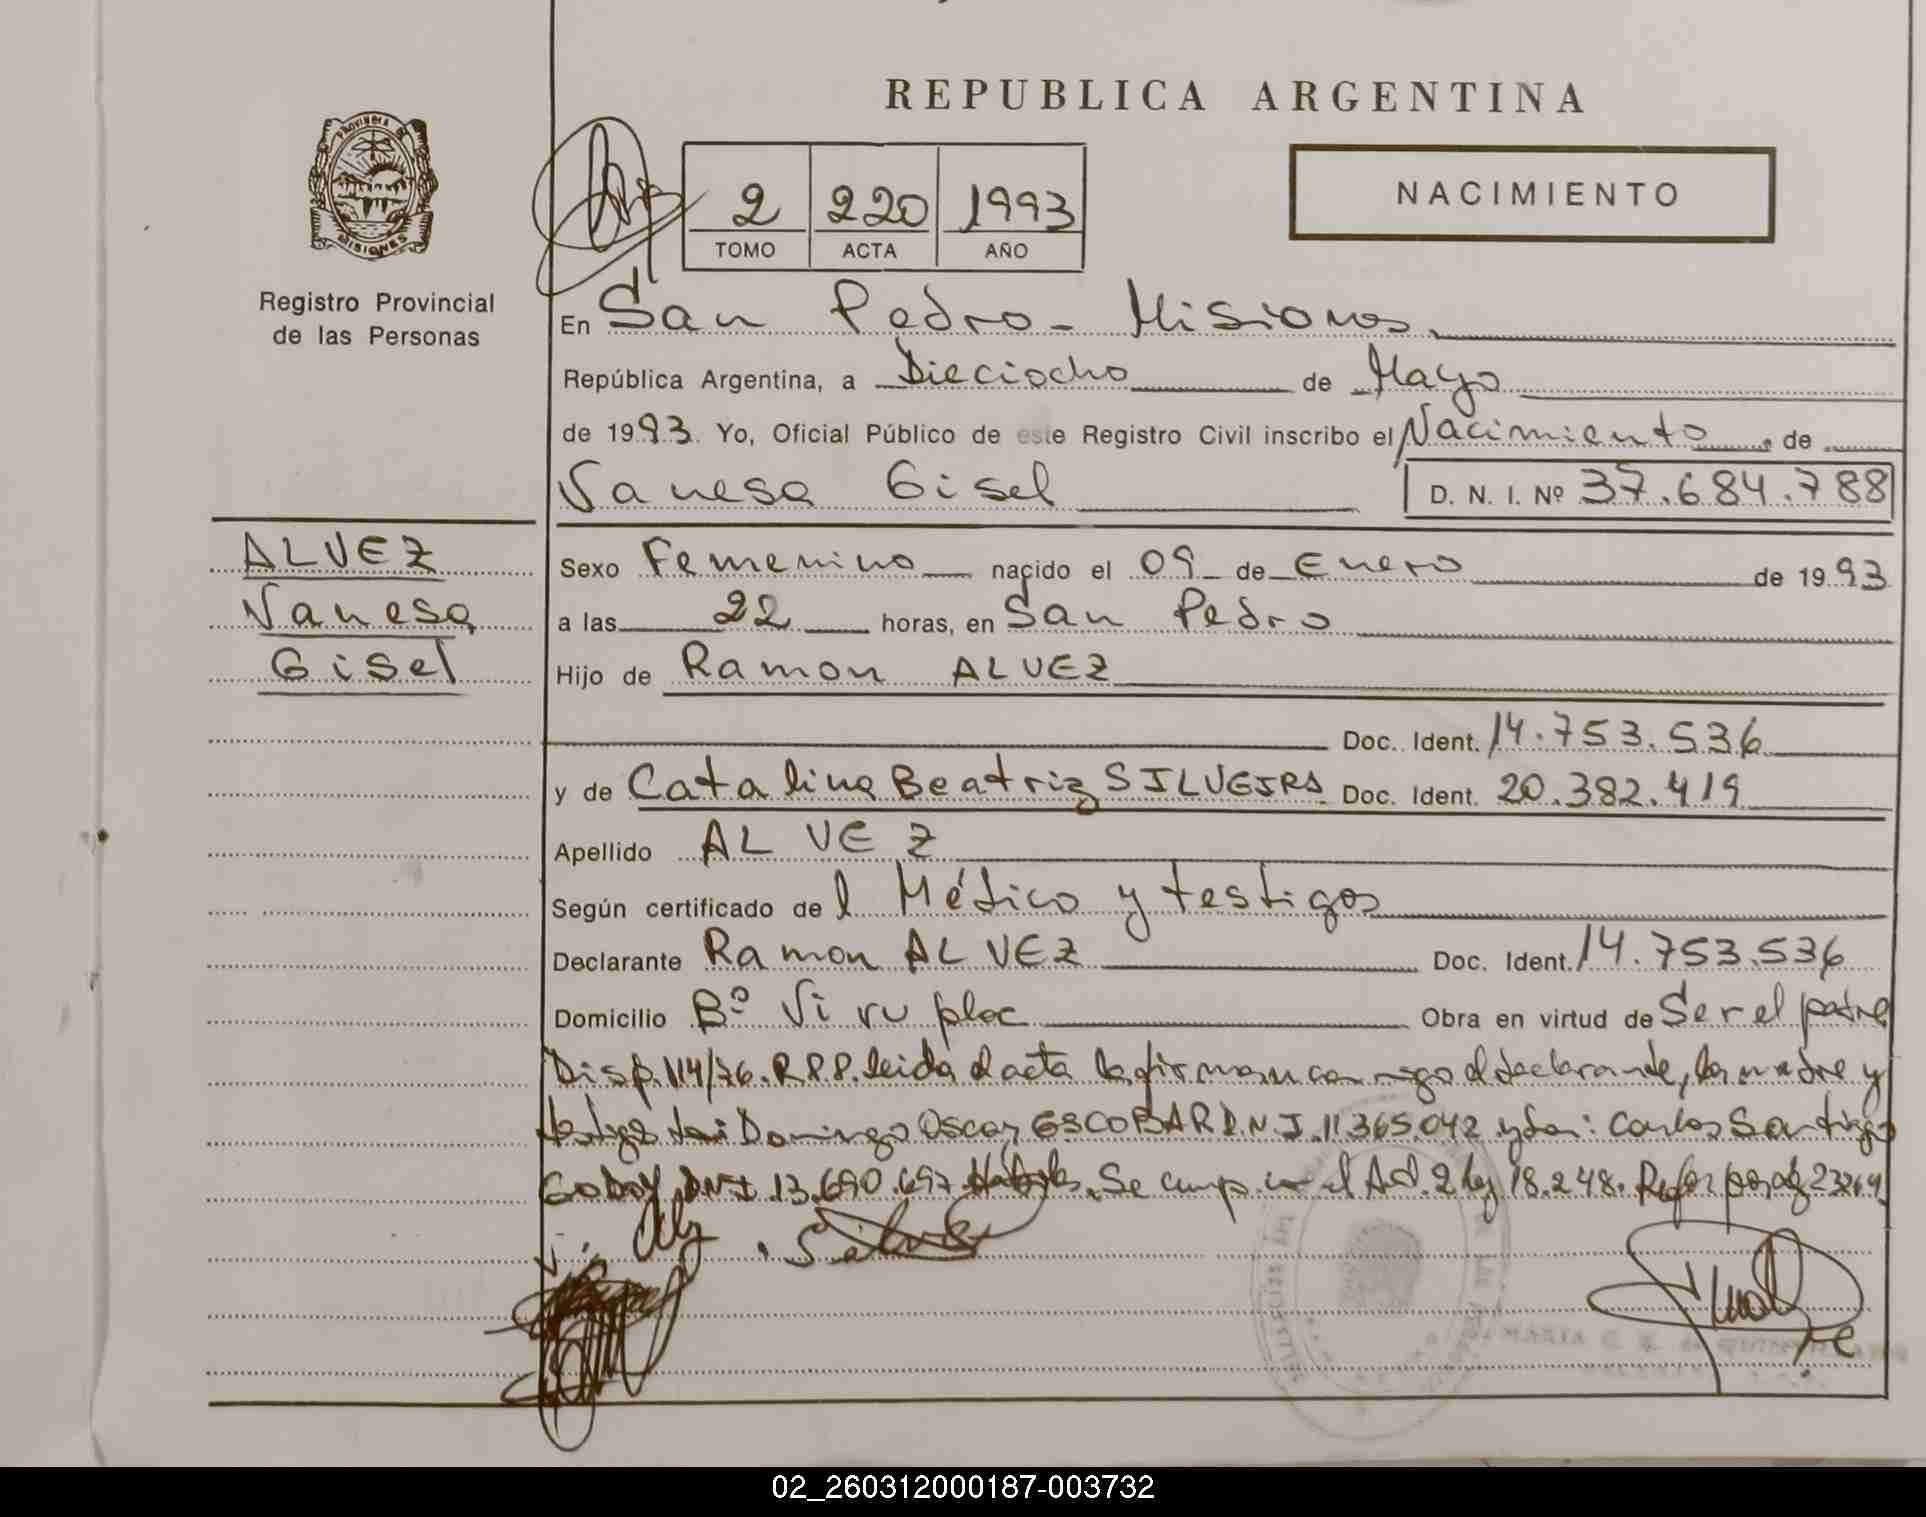 REPUBLICA ARGENTINA
PROVINCIA DE
MISIONES
Registro Provincial
de las Personas
2 220 1993
TOMO ACTA AÑO
NACIMIENTO
En San Pedro - Misiones
República Argentina, a Dieciocho de Mayo
de 1993. Yo, Oficial Público de este Registro Civil inscribo el Nacimiento de
Vanesa Gisel D. N. I. Nº 37.684.788
ALVEZ
Vanesa
Gisel
Sexo Femenino nacido el 09 de Enero de 1993
a las 22 horas, en San Pedro
Hijo de Ramon ALVEZ
Doc. Ident. 14.753.536
y de Catalina Beatriz SILVEIRA Doc. Ident. 20.382.419
Apellido ALVEZ
Según certificado del Médico y testigos
Declarante Ramon ALVEZ Doc. Ident. 14.753.536
Domicilio Bº Vi ru Obra en virtud de Ser el padre
Disp. 114/76. R.P.P. leida el acta la firman conmigo el declarante, la madre y
testigos Domingo Oscar ESCOBAR D.N.I. 11.365.042 y Don: Carlos Santiago
GODOY DNI 13.690.697 Se el Art. 2 ley 18.248.
02_260312000187-003732